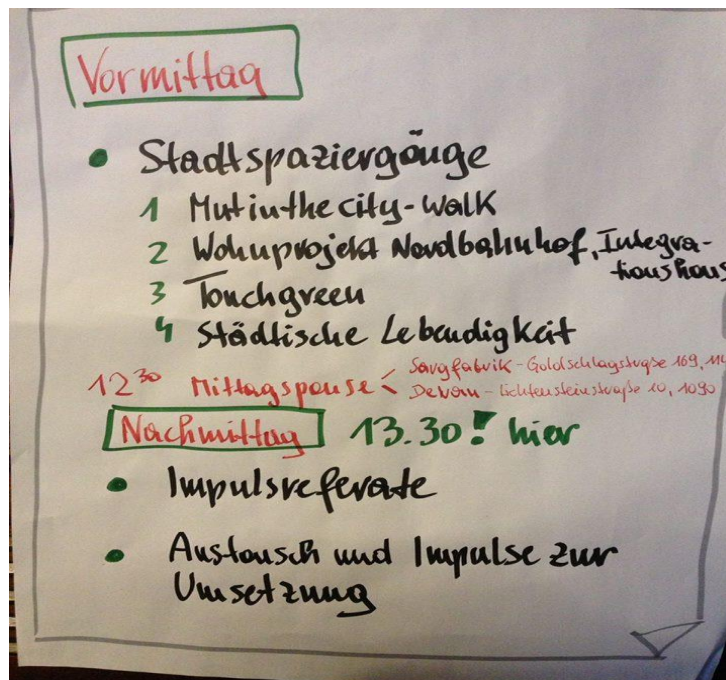 Vormittag
• Stadtspaziergänge
1 Mutinthecity-Walk
2 Wohnprojekt Nordbahnhof, Integra-
tionshaus
3 Touchgreen
4 Städtische Lebendigkeit
12 30 Mittagspause < Sargfabrik - Goldschlagstraße 169, 114
Dewan - Lichtensteinstraße 10, 1090
Nachmittag 13.30! hier
• Impulsreferate
• Austausch und Impulse zur
Umsetzung